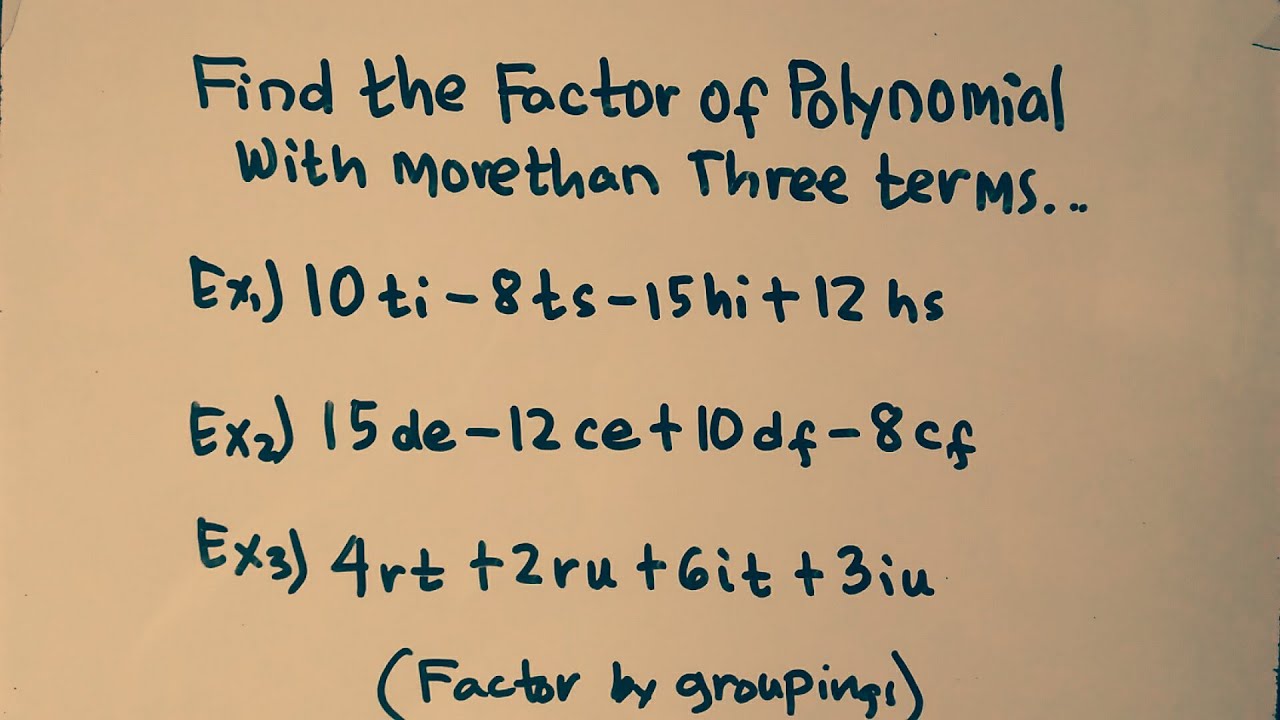 Find the Factor of Polynomial
With Morethan Three terms...
Ex₁) 10ti-8ts-15hi+12hs
Ex₂) 15de-12ce+10df-8cf
Ex₃) 4rt+2ru+6it+3iu
(Factor by groupings)